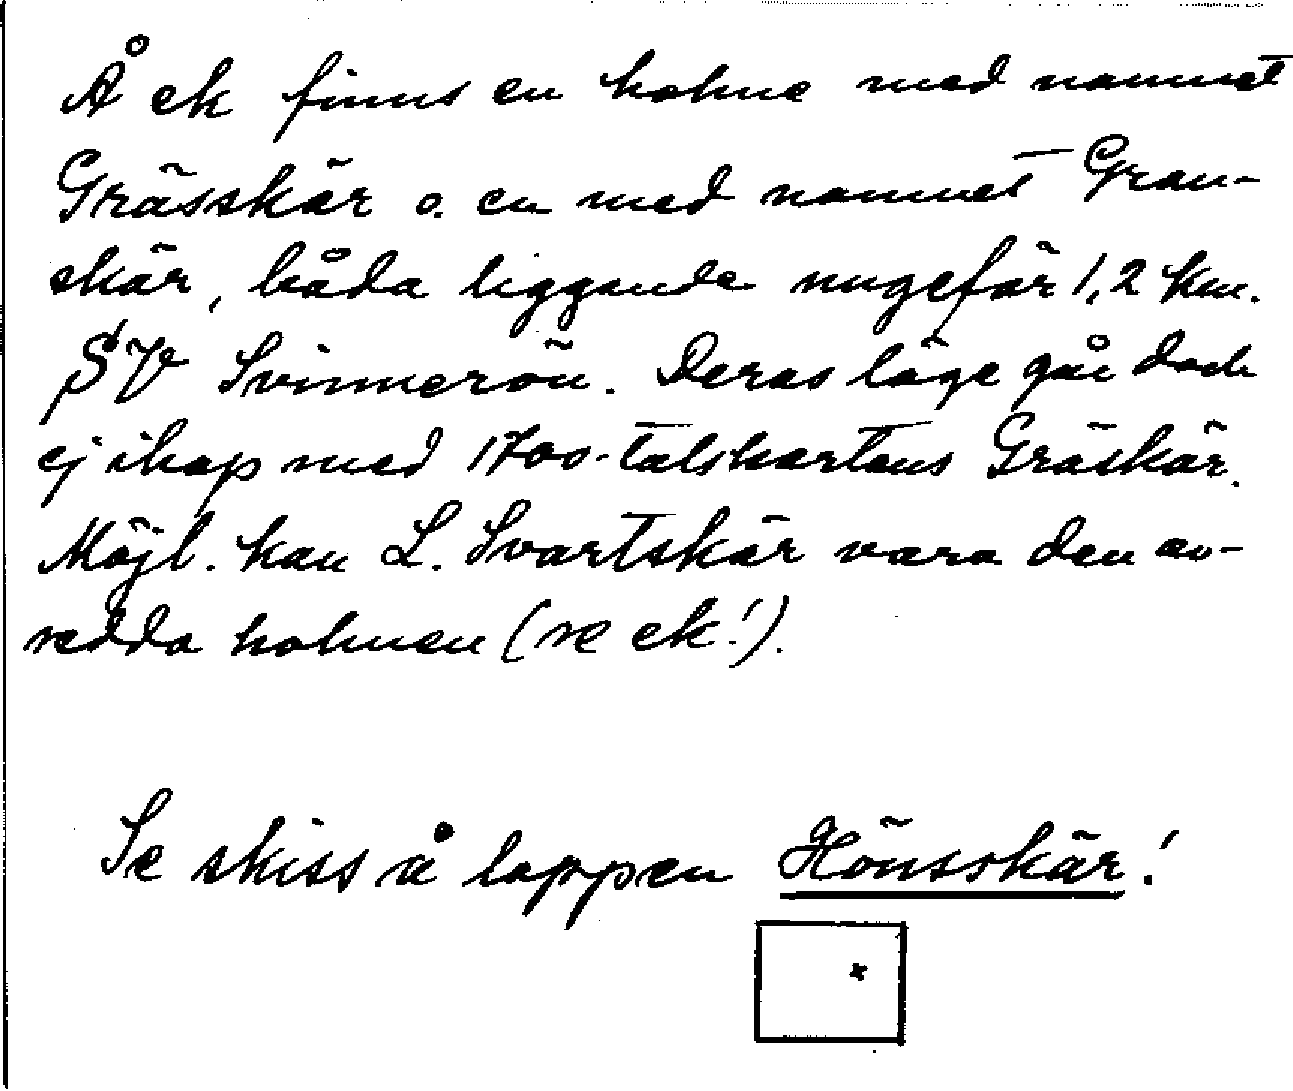 Å ek finns en holme med namnet
Grässkär o. en med namnet Gran-
skär, båda liggande ungefär 1,2 km.
SV Svinnerön. Deras läge går dock
ej ihop med 1700-talskartans Gräskär.
Möjl. kan L. Svartskär vara den av-
sedda holmen (se ek!).
Se skiss å lappen Hönsskär!